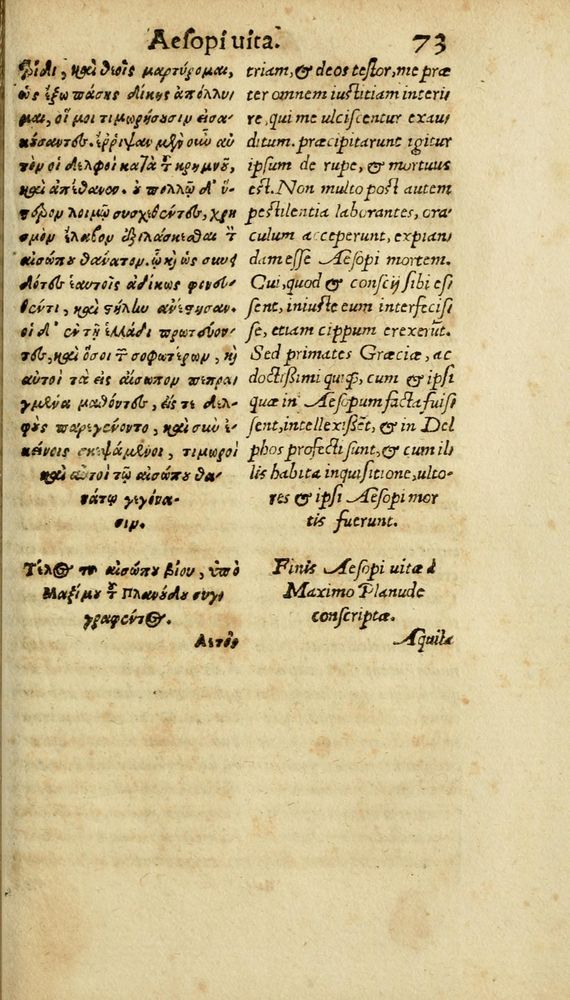 Aesopi uita. 73
τρίδι, καὶ θεοὺς μαρτύρομαι,
ὡς ἔξω πάσης δίκης ἀπόλλυ/
μαι, οἵ μοι τιμωρήσουσιν εἰσα/
κούσαντες. ἔρριψαν μὲν οὖν αὐ
τὸν οἱ δελφοὶ κατὰ τοῦ κρημνοῦ,
καὶ ἀπέθανεν. οὐ πολλῷ δ' ὕ/
στερον λοιμῷ συσχεθέντες, χρη
σμὸν ἔλαβον ἐξιλάσκεσθαι τὸν
αἰσώπου θάνατον. ᾧ καὶ ὡς συνει
δότες ἑαυτοῖς ἀδίκως φονευ/
θέντι, καὶ στήλην ἀνέστησαν.
οἱ δ' ἐν τῇ ἑλλάδι πρωτεύον/
τες, καὶ ὅσοι τῶν σοφωτέρων, καὶ
αὐτοὶ τὰ εἰς αἴσωπον πεπραγ
γμένα μαθόντες, εἴς τε δελ/
φοὺς παρεγένοντο, καὶ σὺν ἐ/
κείνοις σκεψάμενοι, τιμωροὶ
καὶ αὐτοὶ τοῦ αἰσώπου θα/
νάτου γεγόνα/
σιν.
Τέλος τοῦ αἰσώπου βίου, ὑπὸ
Μαξίμου τοῦ Πλανούδου συγ/
γραφέντος.
Ἀετὸς
triam, & deos testor, me præ
ter omnem iustitiam interi/
re, qui me ulciscentur exau/
ditum. præcipitarunt igitur
ipsum de rupe, & mortuus
est. Non multo post autem
pestilentia laborantes, ora/
culum acceperunt, expian/
dam esse Aesopi mortem.
Cui, quod & conscij sibi es/
sent, iniuste eum interfecis/
se, etiam cippum erexerūt.
Sed primates Græciæ, ac
doctissimi quiq;, cum & ipsi
quæ in Aesopum facta fuis/
sent, intellexissēt, & in Del
phos profecti sunt, & cum il/
lis habita inquisitione, ulto-
res & ipsi Aesopi mor
tis fuerunt.
Finis Aesopi uitæ à
Maximo Planude
conscriptæ.
Aquila